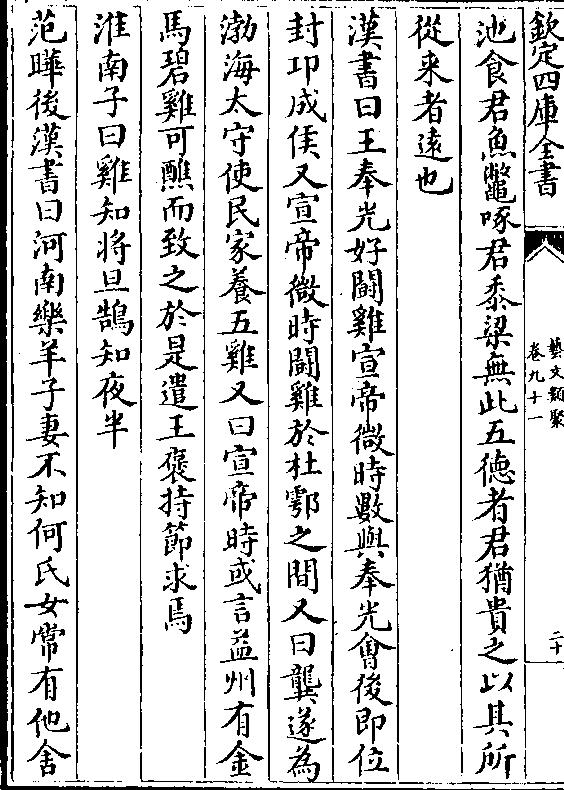 欽定四庫全書
藝文類聚
卷九十一
二十
池食君魚鼈啄君黍粱無此五徳者君猶貴之以其所
從来者遠也
漢書曰王奉光好鬭雞宣帝微時數與奉光會後即位
封卭成侯又宣帝微時鬭雞於杜鄠之間又曰龔遂為
渤海太守使民家養五雞又曰宣帝時或言益州有金
馬碧雞可醮而致之於是遣王褒持節求焉
淮南子曰雞知将旦鵠知夜半
范曄後漢書曰河南樂羊子妻不知何氏女常有他舍